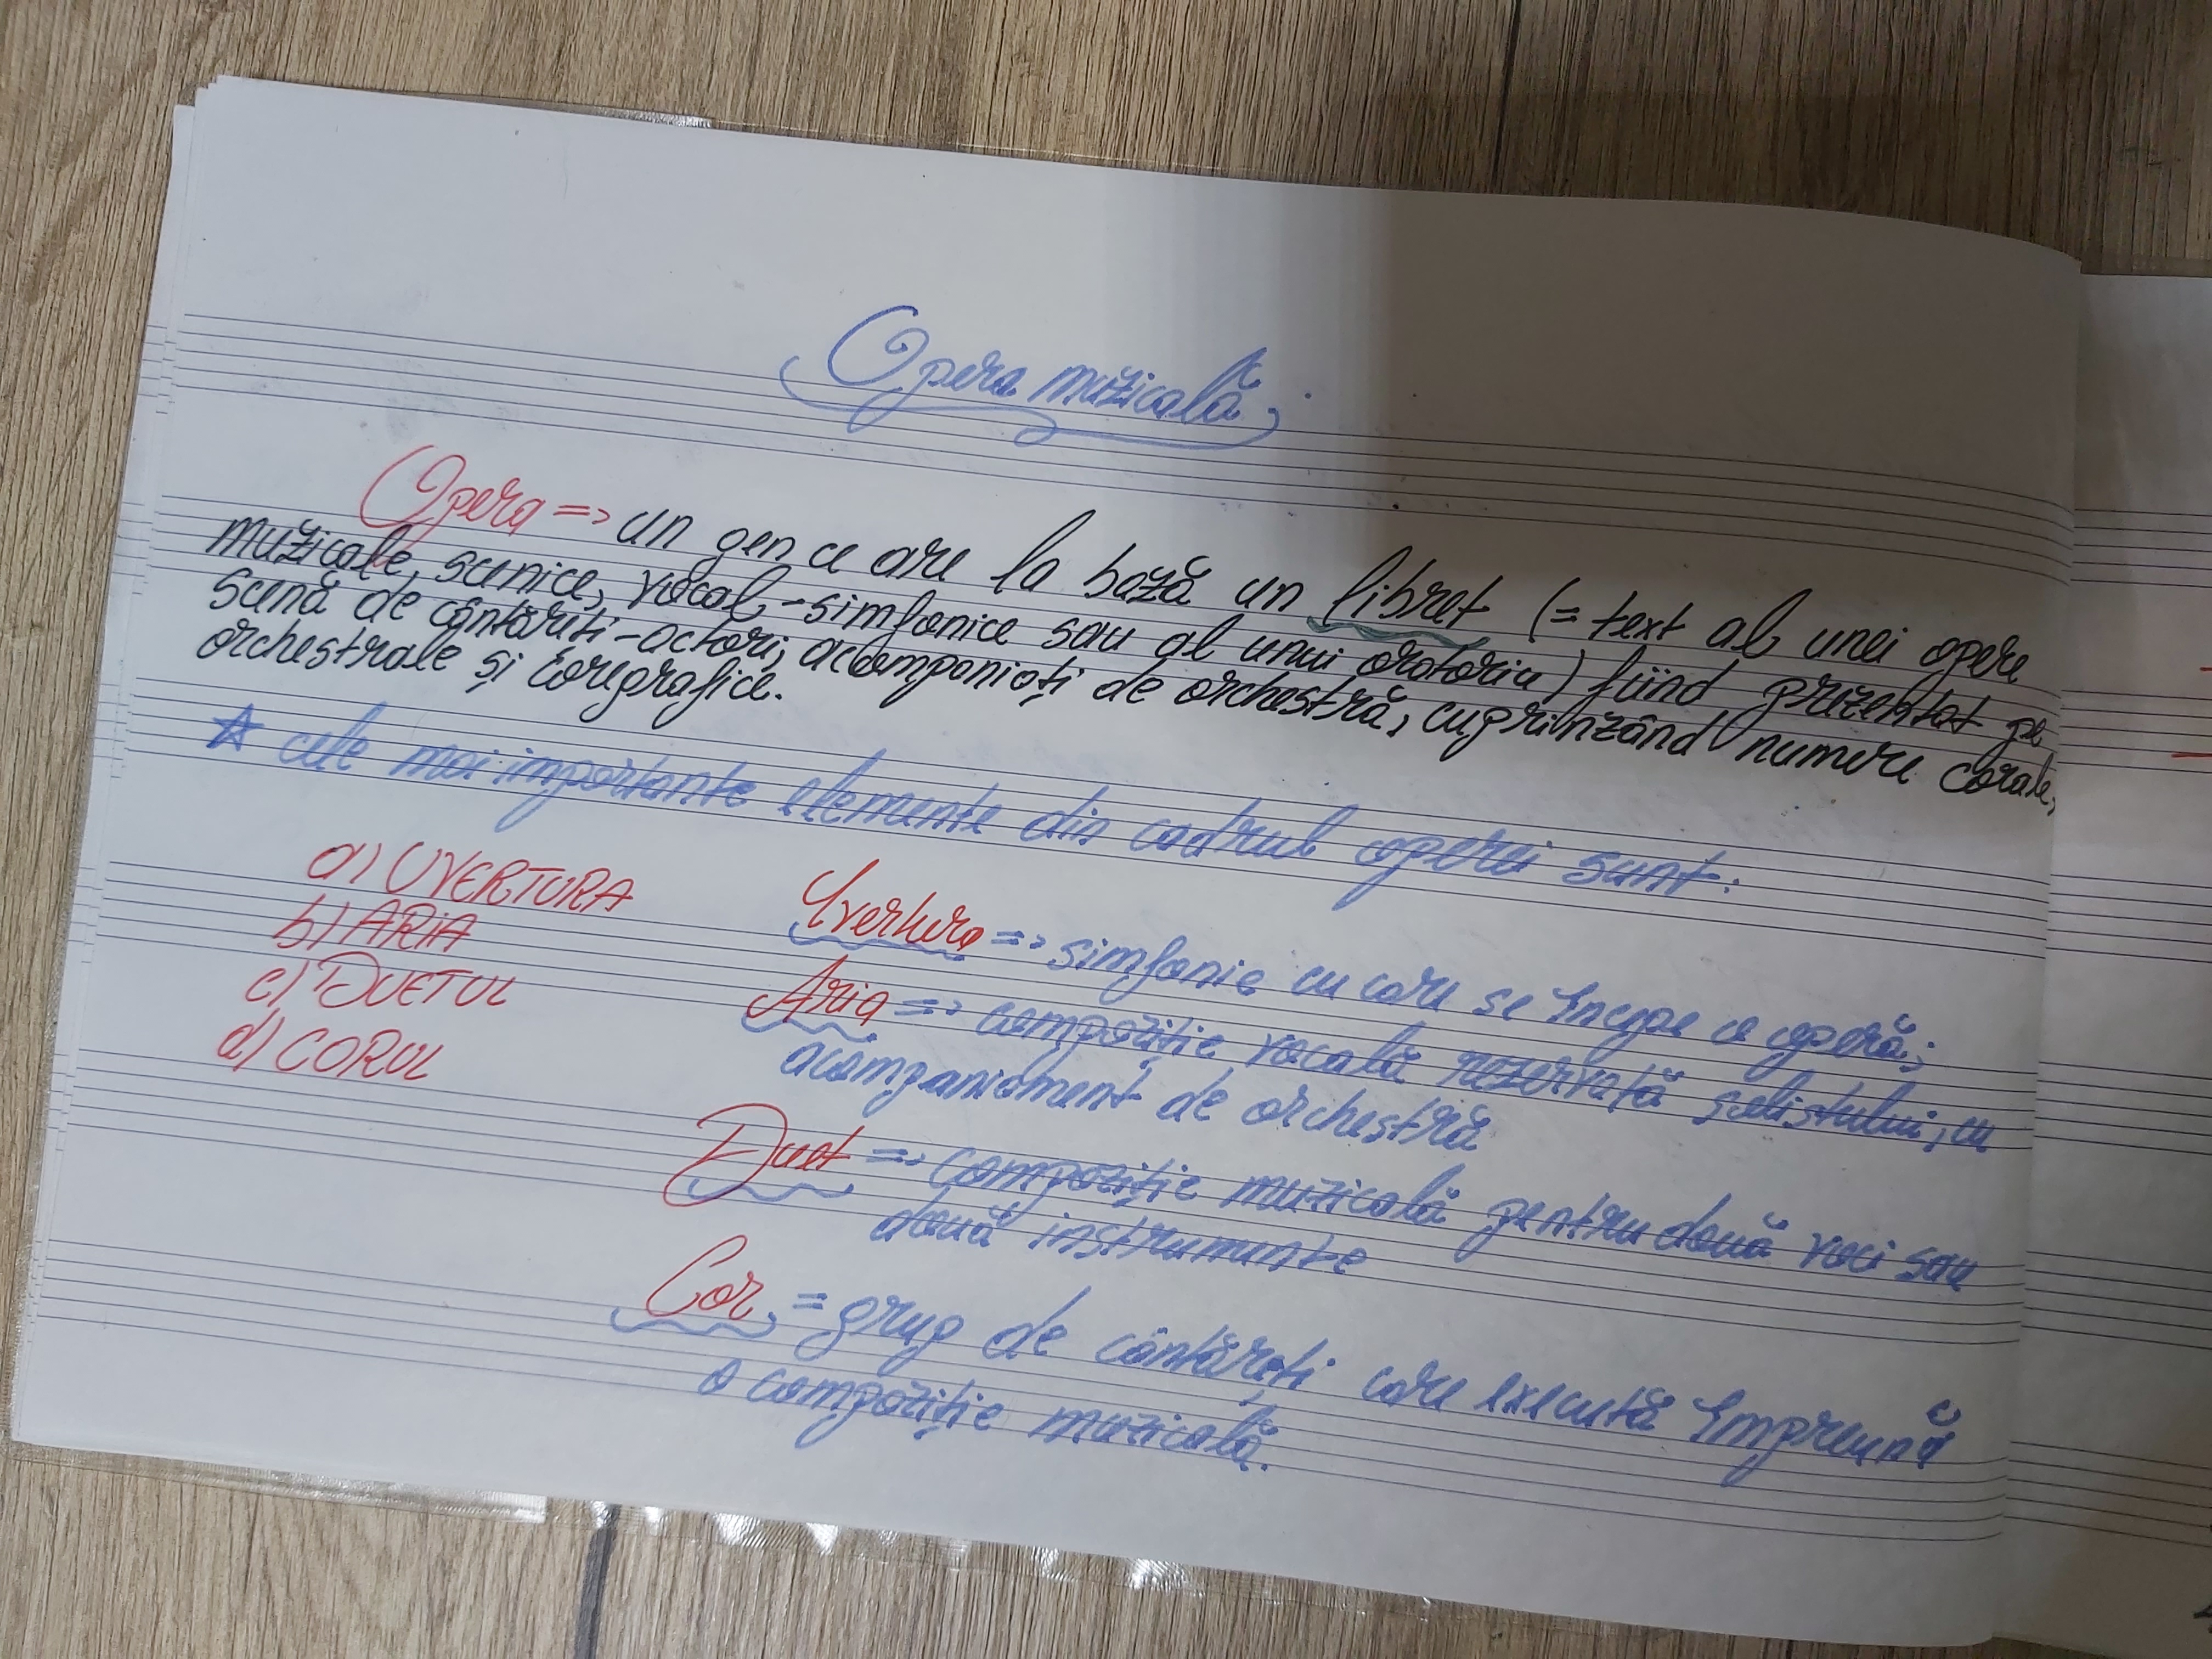 Opera muzicală
Opera => un gen ce are la bază un libret (= text al unei opere
muzicale, scenice, vocal-simfonice sau al unui oratoriu) fiind prezentat pe
scenă de cântăriți-actori, acompaniați de orchestră, cuprinzând numere corale,
orchestrale și coregrafice.
☆ cele mai importante elemente din cadrul operei sunt:
a) UVERTURA
b) ARIA
c) DUETUL
d) CORUL
Uvertura => simfonie cu care se începe o operă;
Aria => compoziție vocală rezervată solistului, cu
acompaniament de orchestră
Duet => compoziție muzicală pentru două voci sau
două instrumente
Cor = grup de cântăreți care execută împreună
o compoziție muzicală.